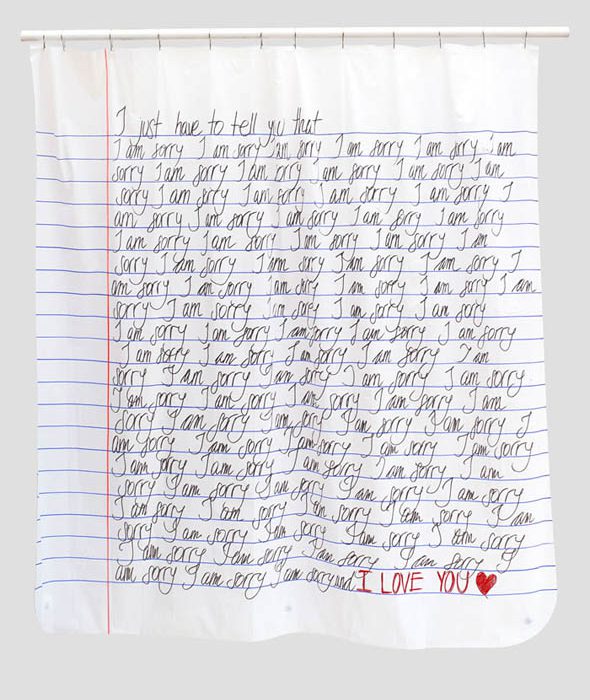 I just have to tell you that
I am sorry I am sorry I am sorry I am sorry I am sorry I am
sorry I am sorry I am sorry I am sorry I am sorry I am
sorry I am sorry I am sorry I am sorry I am sorry I
am sorry I am sorry I am sorry I am sorry I am sorry
I am sorry I am sorry I am sorry I am sorry I am
sorry I am sorry I am sorry I am sorry I am sorry I
am sorry I am sorry I am sorry I am sorry I am sorry I am
sorry I am sorry I am sorry I am sorry I am sorry
I am sorry I am sorry I am sorry I am sorry I am sorry
I am sorry I am sorry I am sorry I am sorry I am
sorry I am sorry I am sorry I am sorry I am sorry
I am sorry I am sorry I am sorry I am sorry I am
sorry I am sorry I am sorry I am sorry I am sorry I
am sorry I am sorry I am sorry I am sorry I am sorry
I am sorry I am sorry I am sorry I am sorry I am
sorry I am sorry I am sorry I am sorry I am sorry
I am sorry I am sorry I am sorry I am sorry I am
sorry I am sorry I am sorry I am sorry I am sorry
I am sorry I am sorry I am sorry I am sorry I
am sorry I am sorry I am sorry and I LOVE YOU